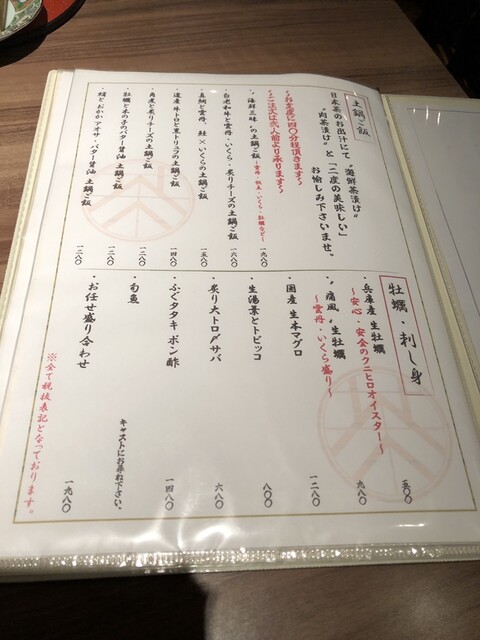 土鍋ご飯
日本茶のお出汁にて"海鮮茶漬け"
"肉茶漬け"と「二度の美味しい」
お愉しみ下さいませ。
〜お出来に四〇分程頂きます〜
〜ご注文は弐人前より承ります〜
・"海鮮三昧"の土鍋ご飯
一九八〇
・白老和牛と雲丹、いくら・炙りチーズの土鍋ご飯
一六八〇
・真鯛と雲丹、鮭×いくらの土鍋ご飯
一五八〇
一四八〇
・角煮と炙りチーズの土鍋ご飯
一二八〇
・牡蠣と木の子のバター醤油 土鍋ご飯
一二八〇
・蛸とおかかアオサ・バター醤油 土鍋ご飯
一二八〇
牡蠣・刺し身
・兵庫産 生牡蠣
五〇〇
〜安心・安全のクニヒロオイスター〜
・"痛風"生牡蠣
九八〇
〜雲丹・いくら盛り〜
・国産 生本マグロ
一二八〇
・生湯葉とトビッコ
八〇〇
・炙り大トロ〆サバ
六八〇
・ふぐタタキ ポン酢
一四八〇
・旬魚
キャストにお尋ね下さい。
・お任せ盛り合わせ
一九八〇
※全て税抜表記となっております。